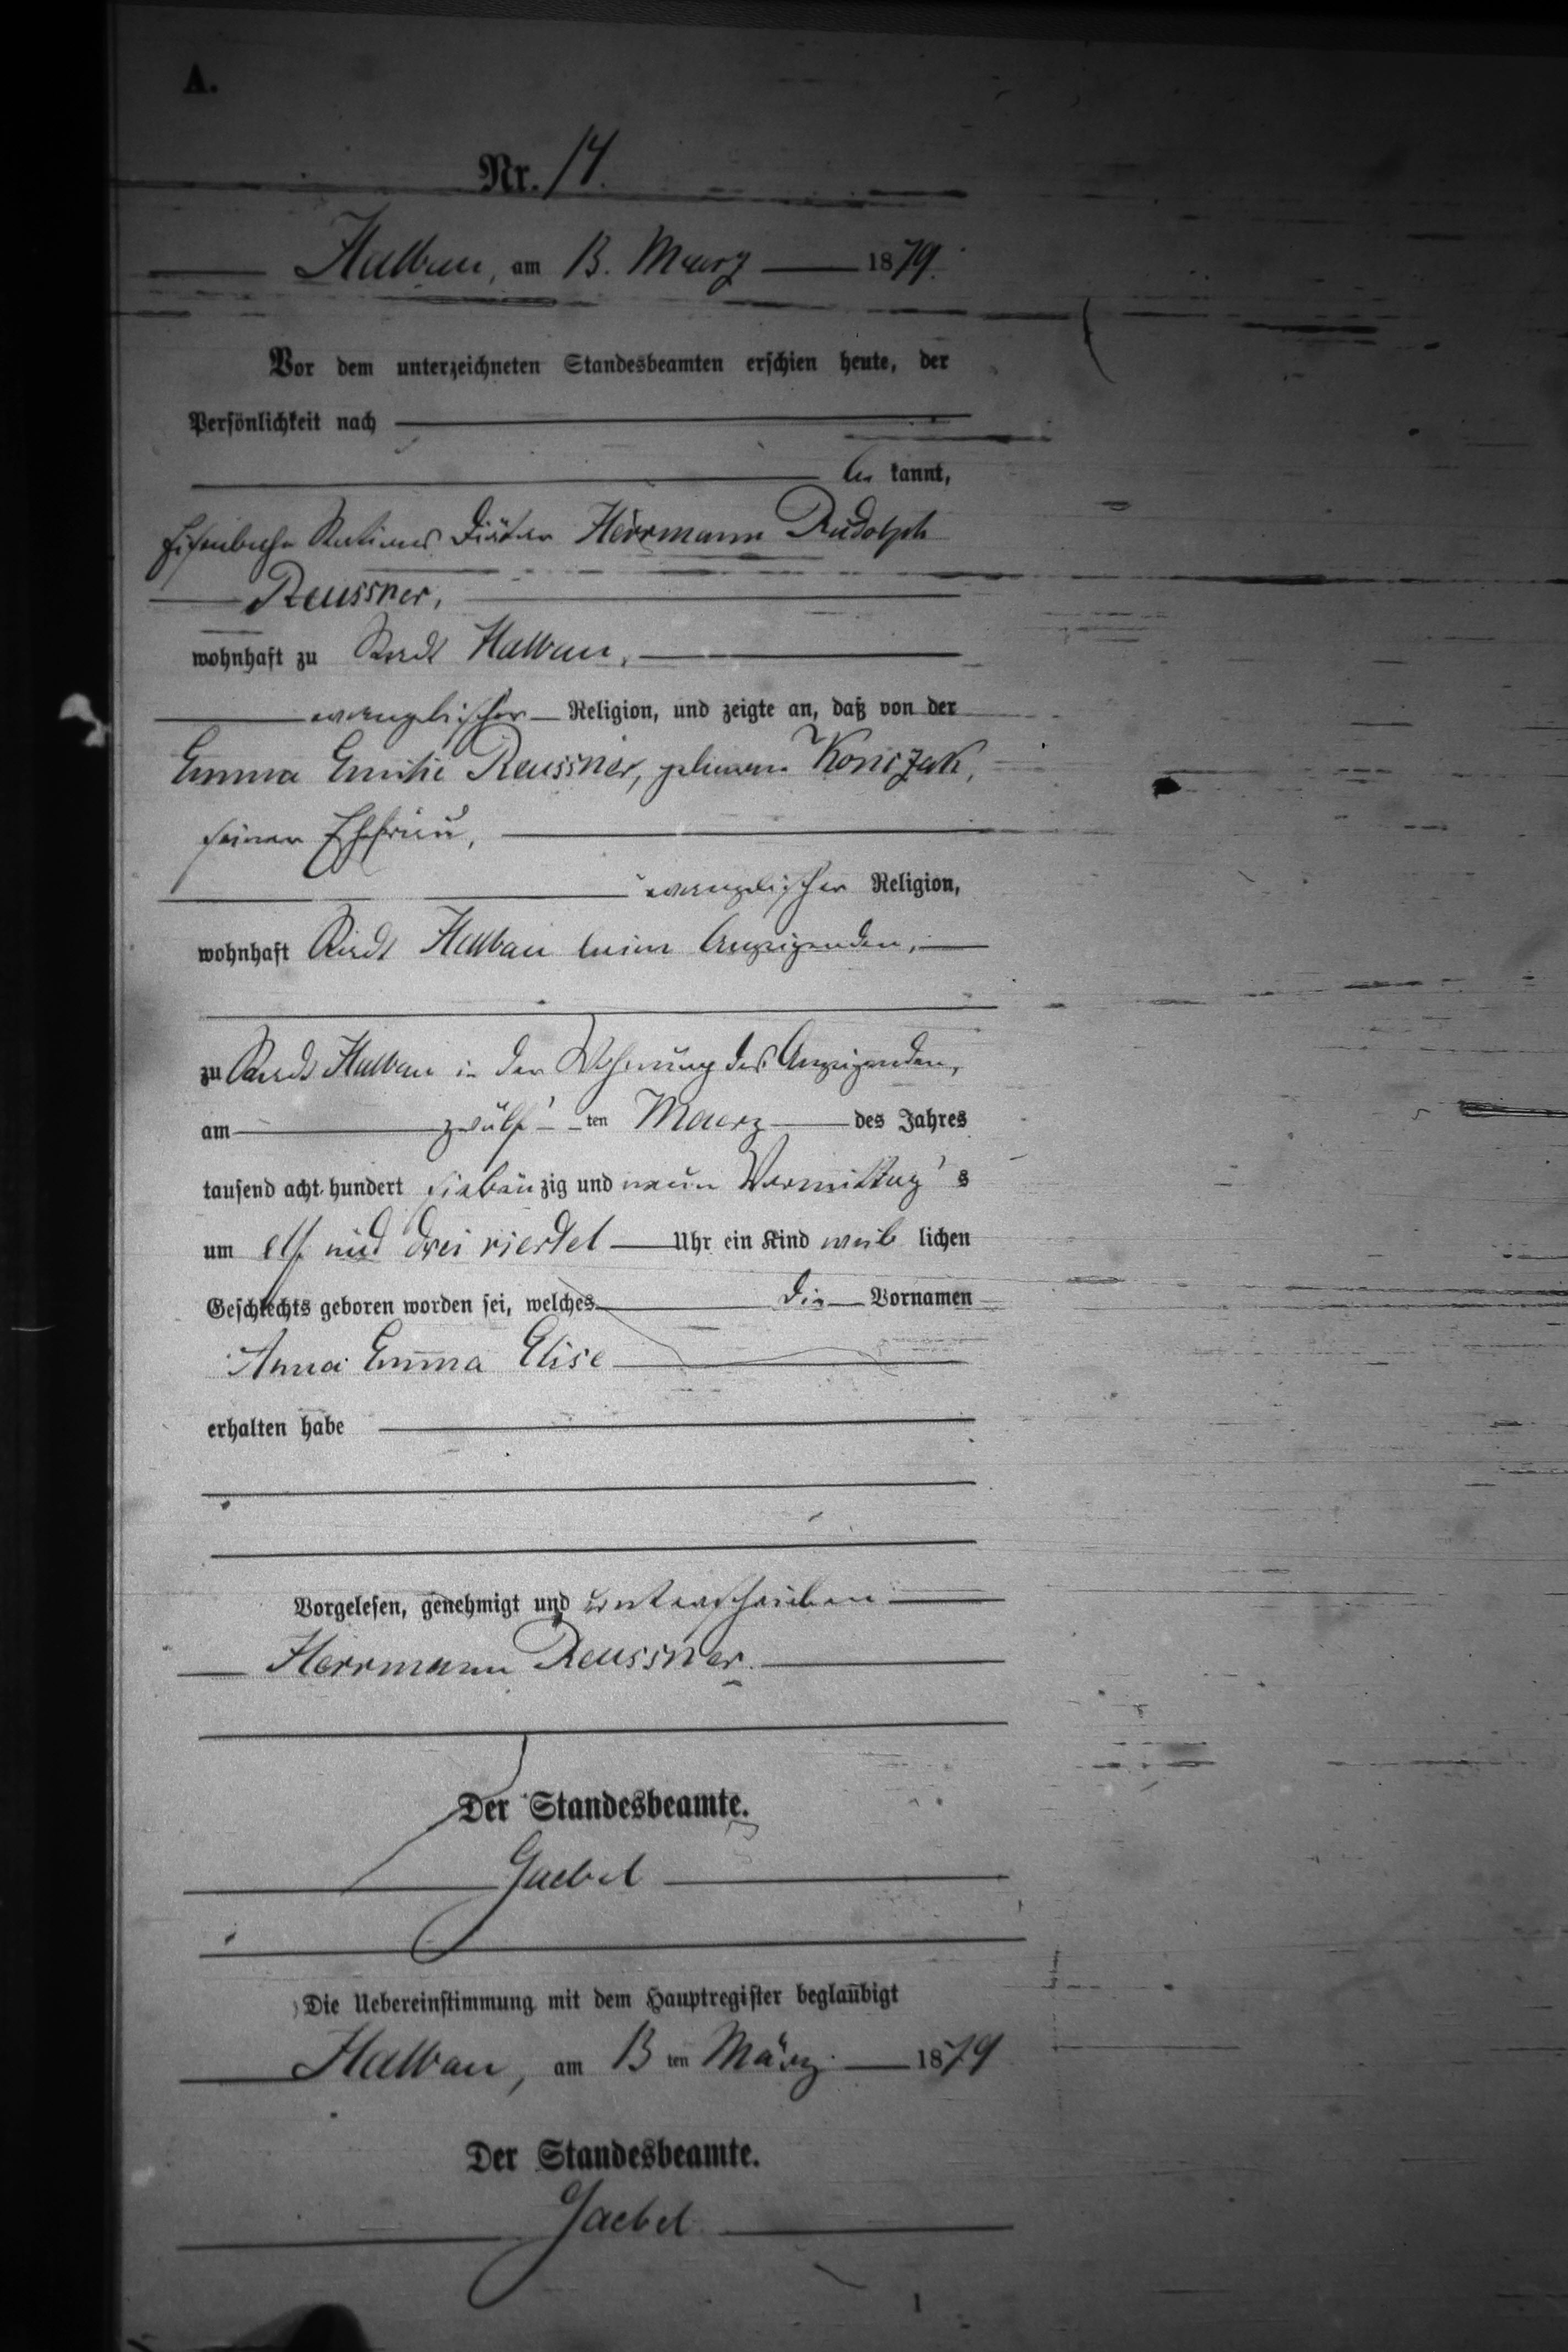 A.
Nr. 14.
Halbau, am 13. Maerz 1879.
Vor dem unterzeichneten Standesbeamten erschien heute, der
Persönlichkeit nach
be kannt,
Eisenbahn Stations Diätar Herrmann Rudolph
Reussner,
wohnhaft zu Stadt Halbau,
evangelischer Religion, und zeigte an, daß von der
Emma Emilie Reussner, geborene
seiner Ehefrau,
evangelischer Religion,
wohnhaft Stadt Halbau beim Anzeigenden,
zu Stadt Halbau in der Wohnung des Anzeigenden,
am zwölf ten Maerz des Jahres
tausend acht hundert siebenzig und neun Vormittag s
um elf und drei viertel Uhr ein Kind weib lichen
Geschlechts geboren worden sei, welches die Vornamen
Anna Emma Elise
erhalten habe
Vorgelesen, genehmigt und unterschrieben
Herrmann Reussner.
Der Standesbeamte.
Gaebel
Die Uebereinstimmung mit dem Hauptregister beglaubigt
Halbau, am 13 ten März 1879
Der Standesbeamte.
Gaebel
1